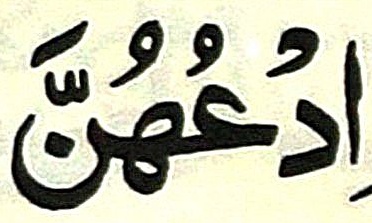 اِدْعُهُنَّ